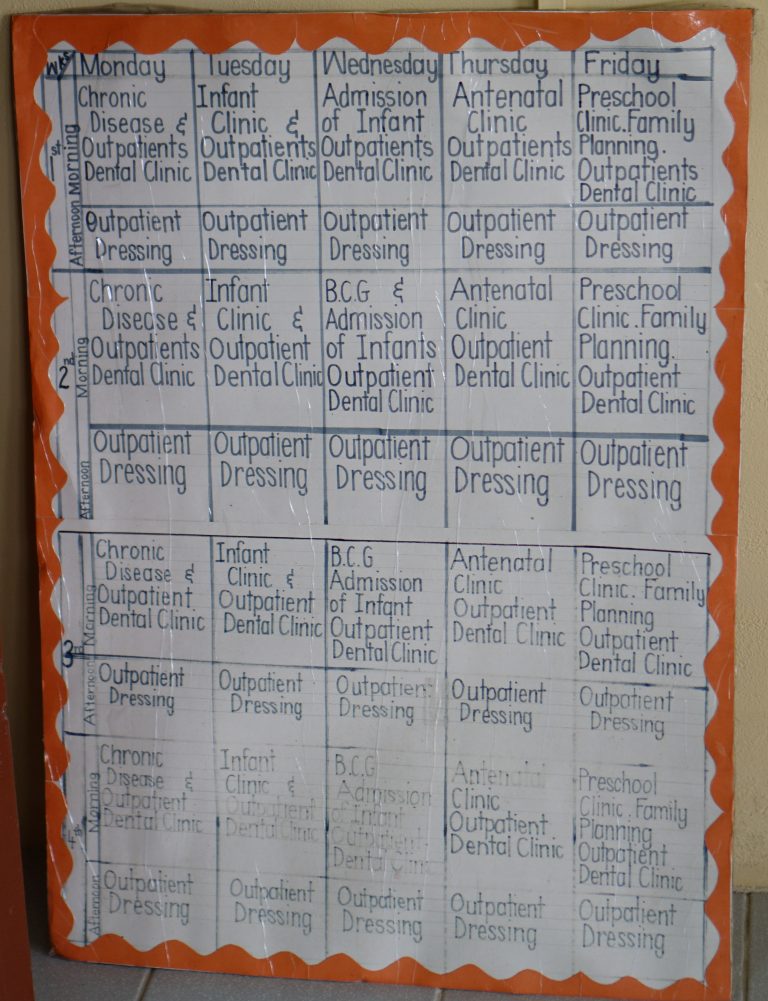 Wks Monday Tuesday Wednesday Thursday Friday
1st
Morning
Chronic
Disease &
Outpatients
Dental Clinic
Infant
Clinic &
Outpatients
Dental Clinic
Admission
of Infant
Outpatients
Dental Clinic
Antenatal
Clinic
Outpatients
Dental Clinic
Preschool
Clinic.Family
Planning.
Outpatients
Dental Clinic
Afternoon
Outpatient
Dressing
Outpatient
Dressing
Outpatient
Dressing
Outpatient
Dressing
Outpatient
Dressing
2nd
Morning
Chronic
Disease &
Outpatients
Dental Clinic
Infant
Clinic &
Outpatient
Dental Clinic
B.C.G &
Admission
of Infants
Outpatient
Dental Clinic
Antenatal
Clinic
Outpatient
Dental Clinic
Preschool
Clinic.Family
Planning.
Outpatient
Dental Clinic
Afternoon
Outpatient
Dressing
Outpatient
Dressing
Outpatient
Dressing
Outpatient
Dressing
Outpatient
Dressing
Morning
Chronic
Disease &
Outpatient
Dental Clinic
Infant
Clinic &
Outpatient
Dental Clinic
B.C.G
Admission
of Infant
Outpatient
Dental Clinic
Antenatal
Clinic
Outpatient
Dental Clinic
Preschool
Clinic. Family
Planning
Outpatient
Dental Clinic
Afternoon
Outpatient
Dressing
Outpatient
Dressing
Outpatient
Dressing
Outpatient
Dressing
Outpatient
Dressing
4th
Morning
Chronic
Disease &
Outpatient
Dental Clinic
Infant
Clinic &
Outpatient
Dental Clinic
B.C.G
Admission
of Infant
Outpatient
Dental Clinic
Antenatal
Clinic
Outpatient
Dental Clinic
Preschool
Clinic. Family
Planning
Outpatient
Dental Clinic
Afternoon
Outpatient
Dressing
Outpatient
Dressing
Outpatient
Dressing
Outpatient
Dressing
Outpatient
Dressing